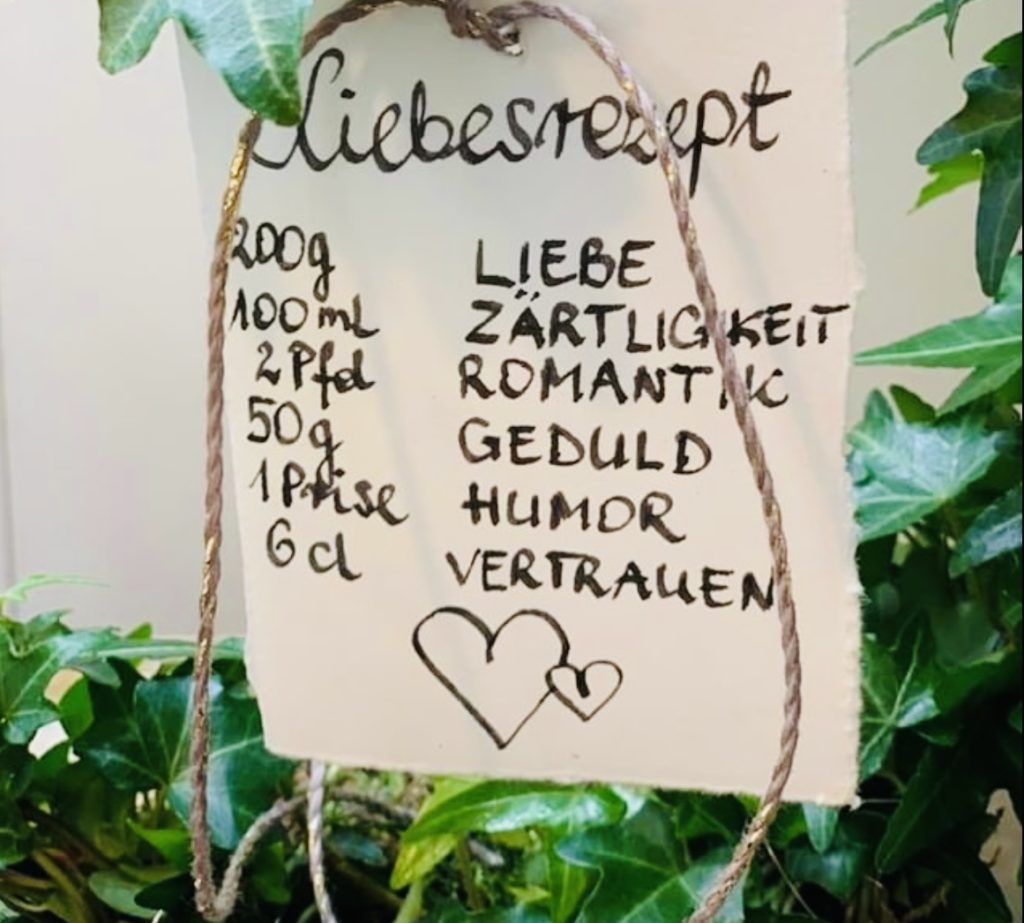 Liebesrezept
200g LIEBE
100ml ZÄRTLIGKEIT
2 Pfd ROMANTIK
50g GEDULD
1 Prise HUMOR
6 cl VERTRAUEN